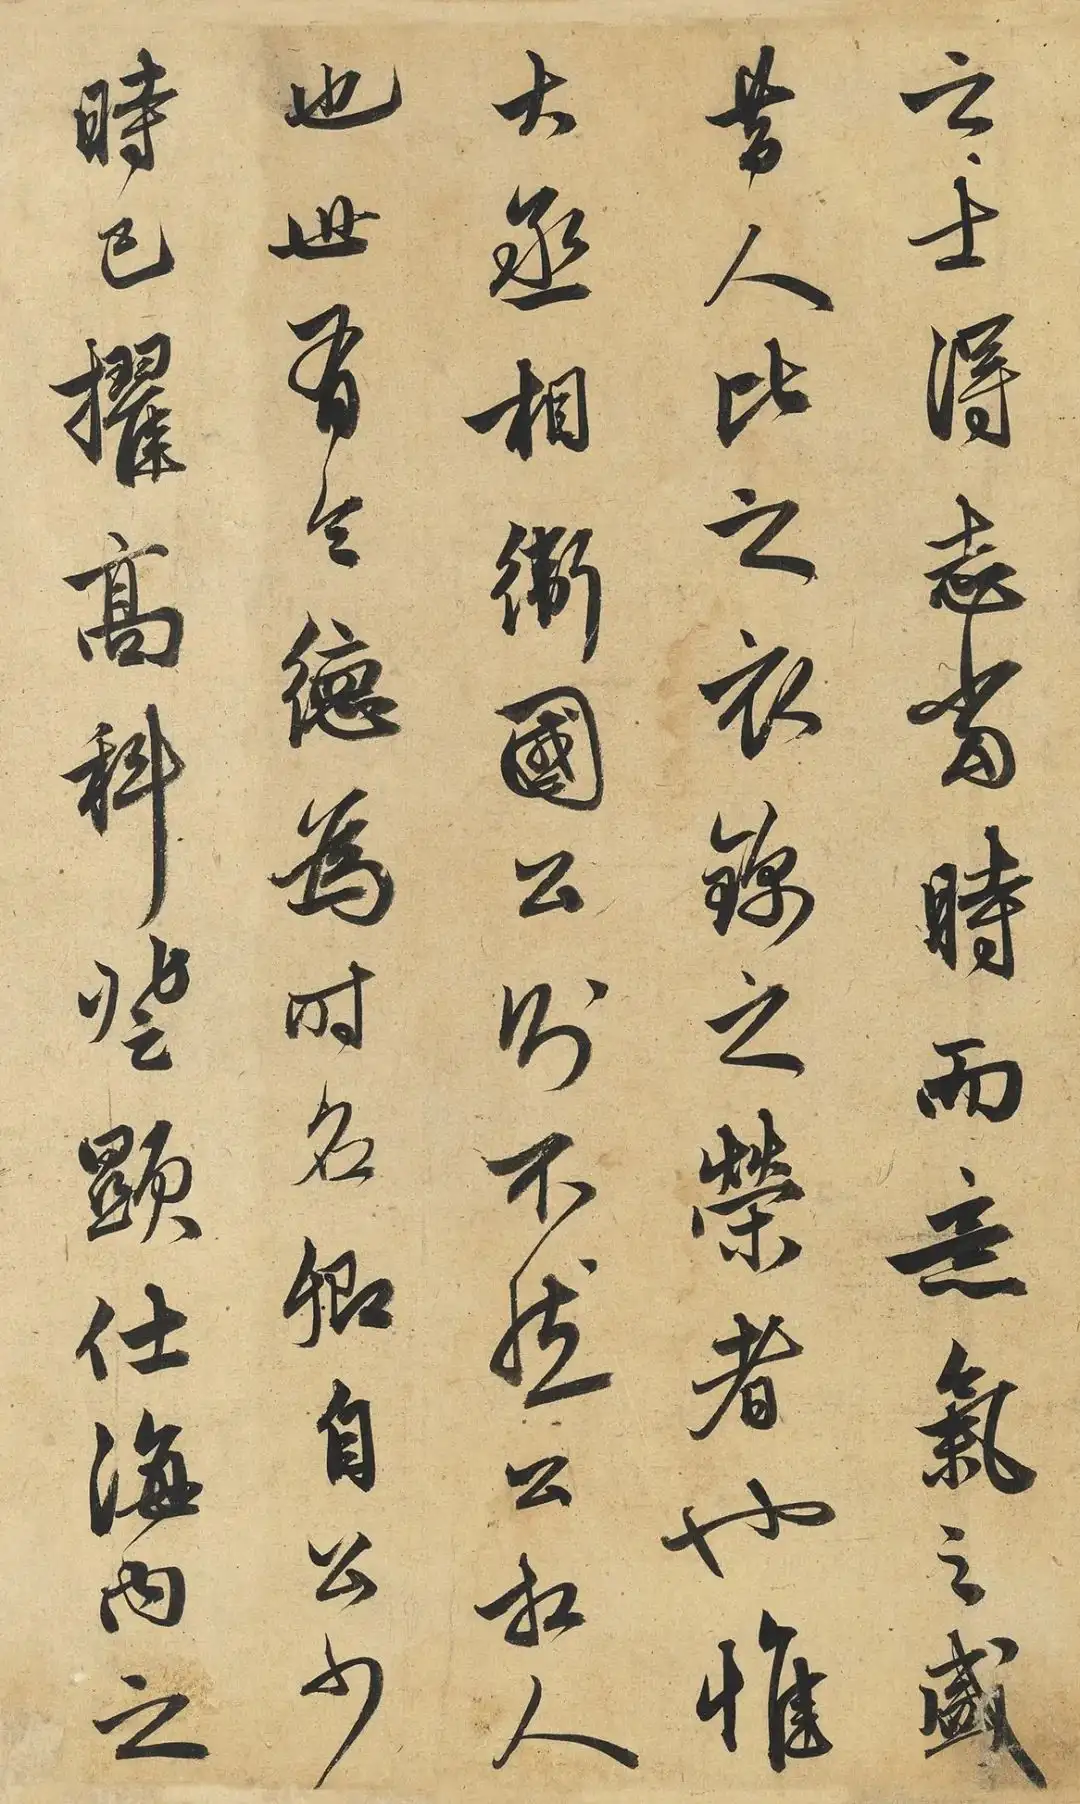 之士得志當時而意氣之盛
昔人比之衣錦之榮者也惟
大丞相衛國公則不然公相人
也世有令德為時名卿自公少
時已擢高科登顯仕海内之